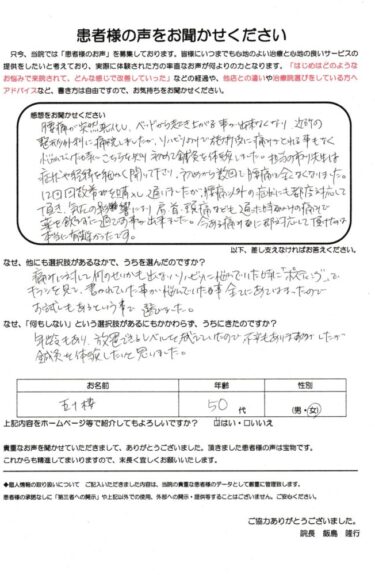 患者様の声をお聞かせください
只今、当院では「患者様のお声」を募集しております。皆様にいつまでも心地のよい治療と心地の良いサービスの
提供をしたいと考えており、実際に体験された方の率直なお声が何よりの力となります。「はじめはどのような
お悩みで来院されて、どんな感じで改善していった」などの経過や、他店との違いや治療院選びをしている方へ
アドバイスなど、書き方は自由ですので、お気持ちをお聞かせください。
感想をお聞かせください
腰痛が突然悪化し、ベッドから起き上がる事が出来なくなり、近所の
整形外科に通院しましたが、リハビリのみで施術後に痛みがとれる事もなく
悩んでいた時にこちらを知り初めて鍼灸を体験しました。担当の
症状や経緯を細かく聞いて下さり、初めから数回で腰痛は全くなくなりました。
12回回数券を購入し通いましたが、腰痛以外の症状にも都度対応して
頂き、気圧の影響による肩、首、頭痛なども
薬を飲まずに過ごす事が出来ました。今ある痛み
本当に有難かったです。
以下、差し支えなければお答えください。
なぜ、他にも選択肢があるなかで、うちを選んだのですか?
痛みに対して何の
チラシを見て、書かれていた事が悩んでいた事全てにあてはまったので
お試しもあるという事で選びました。
なぜ、「何もしない」という選択肢があるにもかかわらず、うちにきたのですか?
年齢もあり、放置できるレベルを越えていたので不安もありましたが
鍼灸を体験したいと思いました。
お名前 年齢 性別
50代 (男・女)
上記内容をホームページ等で紹介してもよろしいですか? ☑はい・□いいえ
貴重なお声を聞かせていただきまして、ありがとうございました。頂きました患者様の声は宝物です。
これからも精進してまいりますので、末長く宜しくお願いいたします。
◆個人情報の取り扱いについて ご記入いただきました内容は、当院の貴重な患者様のデータとして厳重に管理致します。
患者様の承諾なしに「第三者への開示」や上記以外での使用、外部への開示・提供等することはございません。ご安心ください。
ご協力ありがとうございました。
院長 飯島 隆行